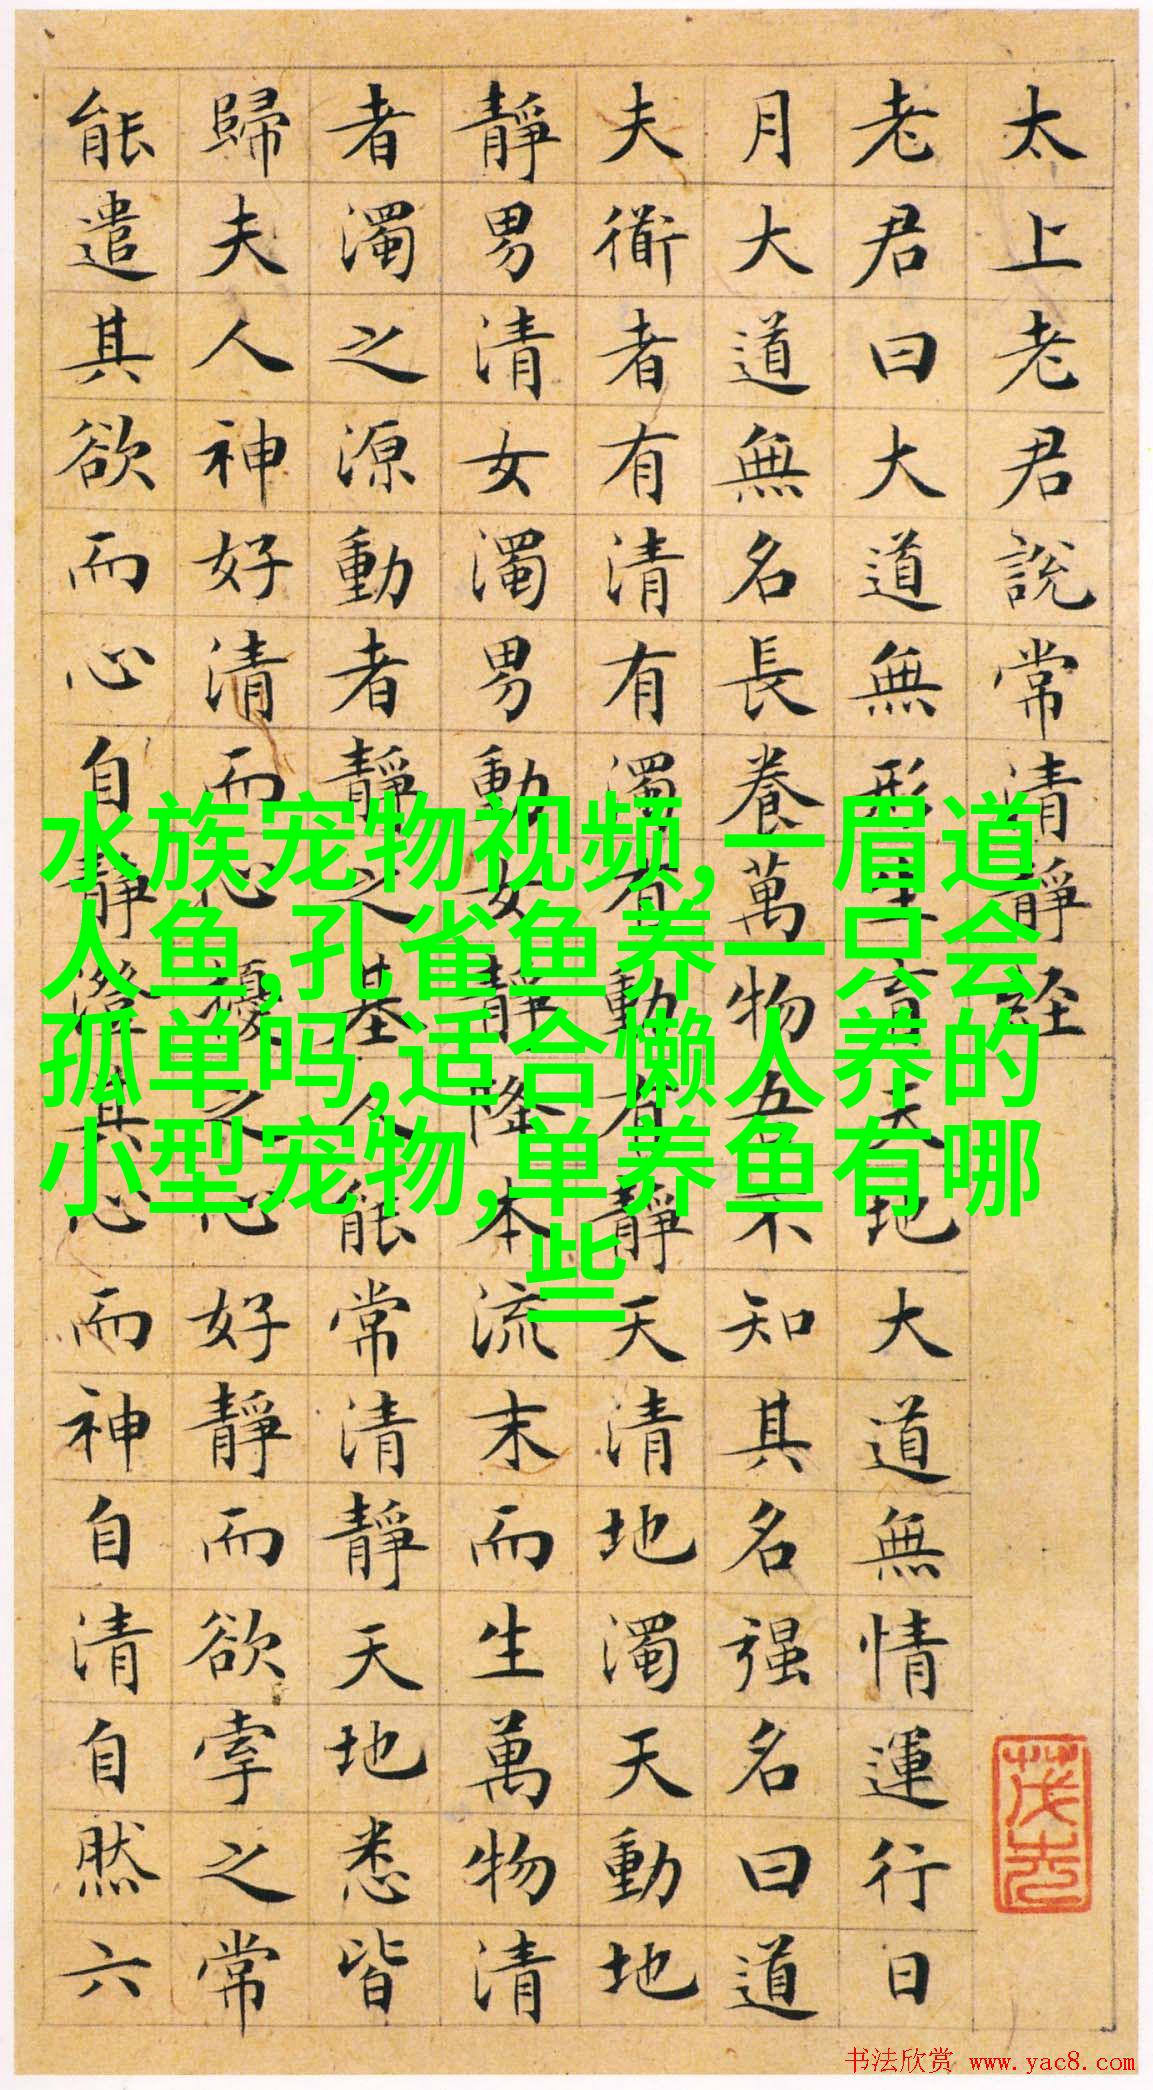 太上老君說常清靜經
老君曰大道無形生育天地大道無情運行日
月大道無名長養萬物吾不知其名强名曰道
夫衜者有清有濁有動有靜天清地濁天動地
靜男清女濁男動女靜降本流末而生萬物清
者濁之源動者靜之基人能常清靜天地悉皆
歸夫人神好清而心擾之心好靜而欲牽之常
能遣其欲而心自靜澄其心而神自清自然六
水族宠物视频,一眉道
人鱼,孔雀鱼养一只会
孤单吗,适合懒人养的
小型宠物,单养鱼有哪
些
书法欣赏 www.yac8.com